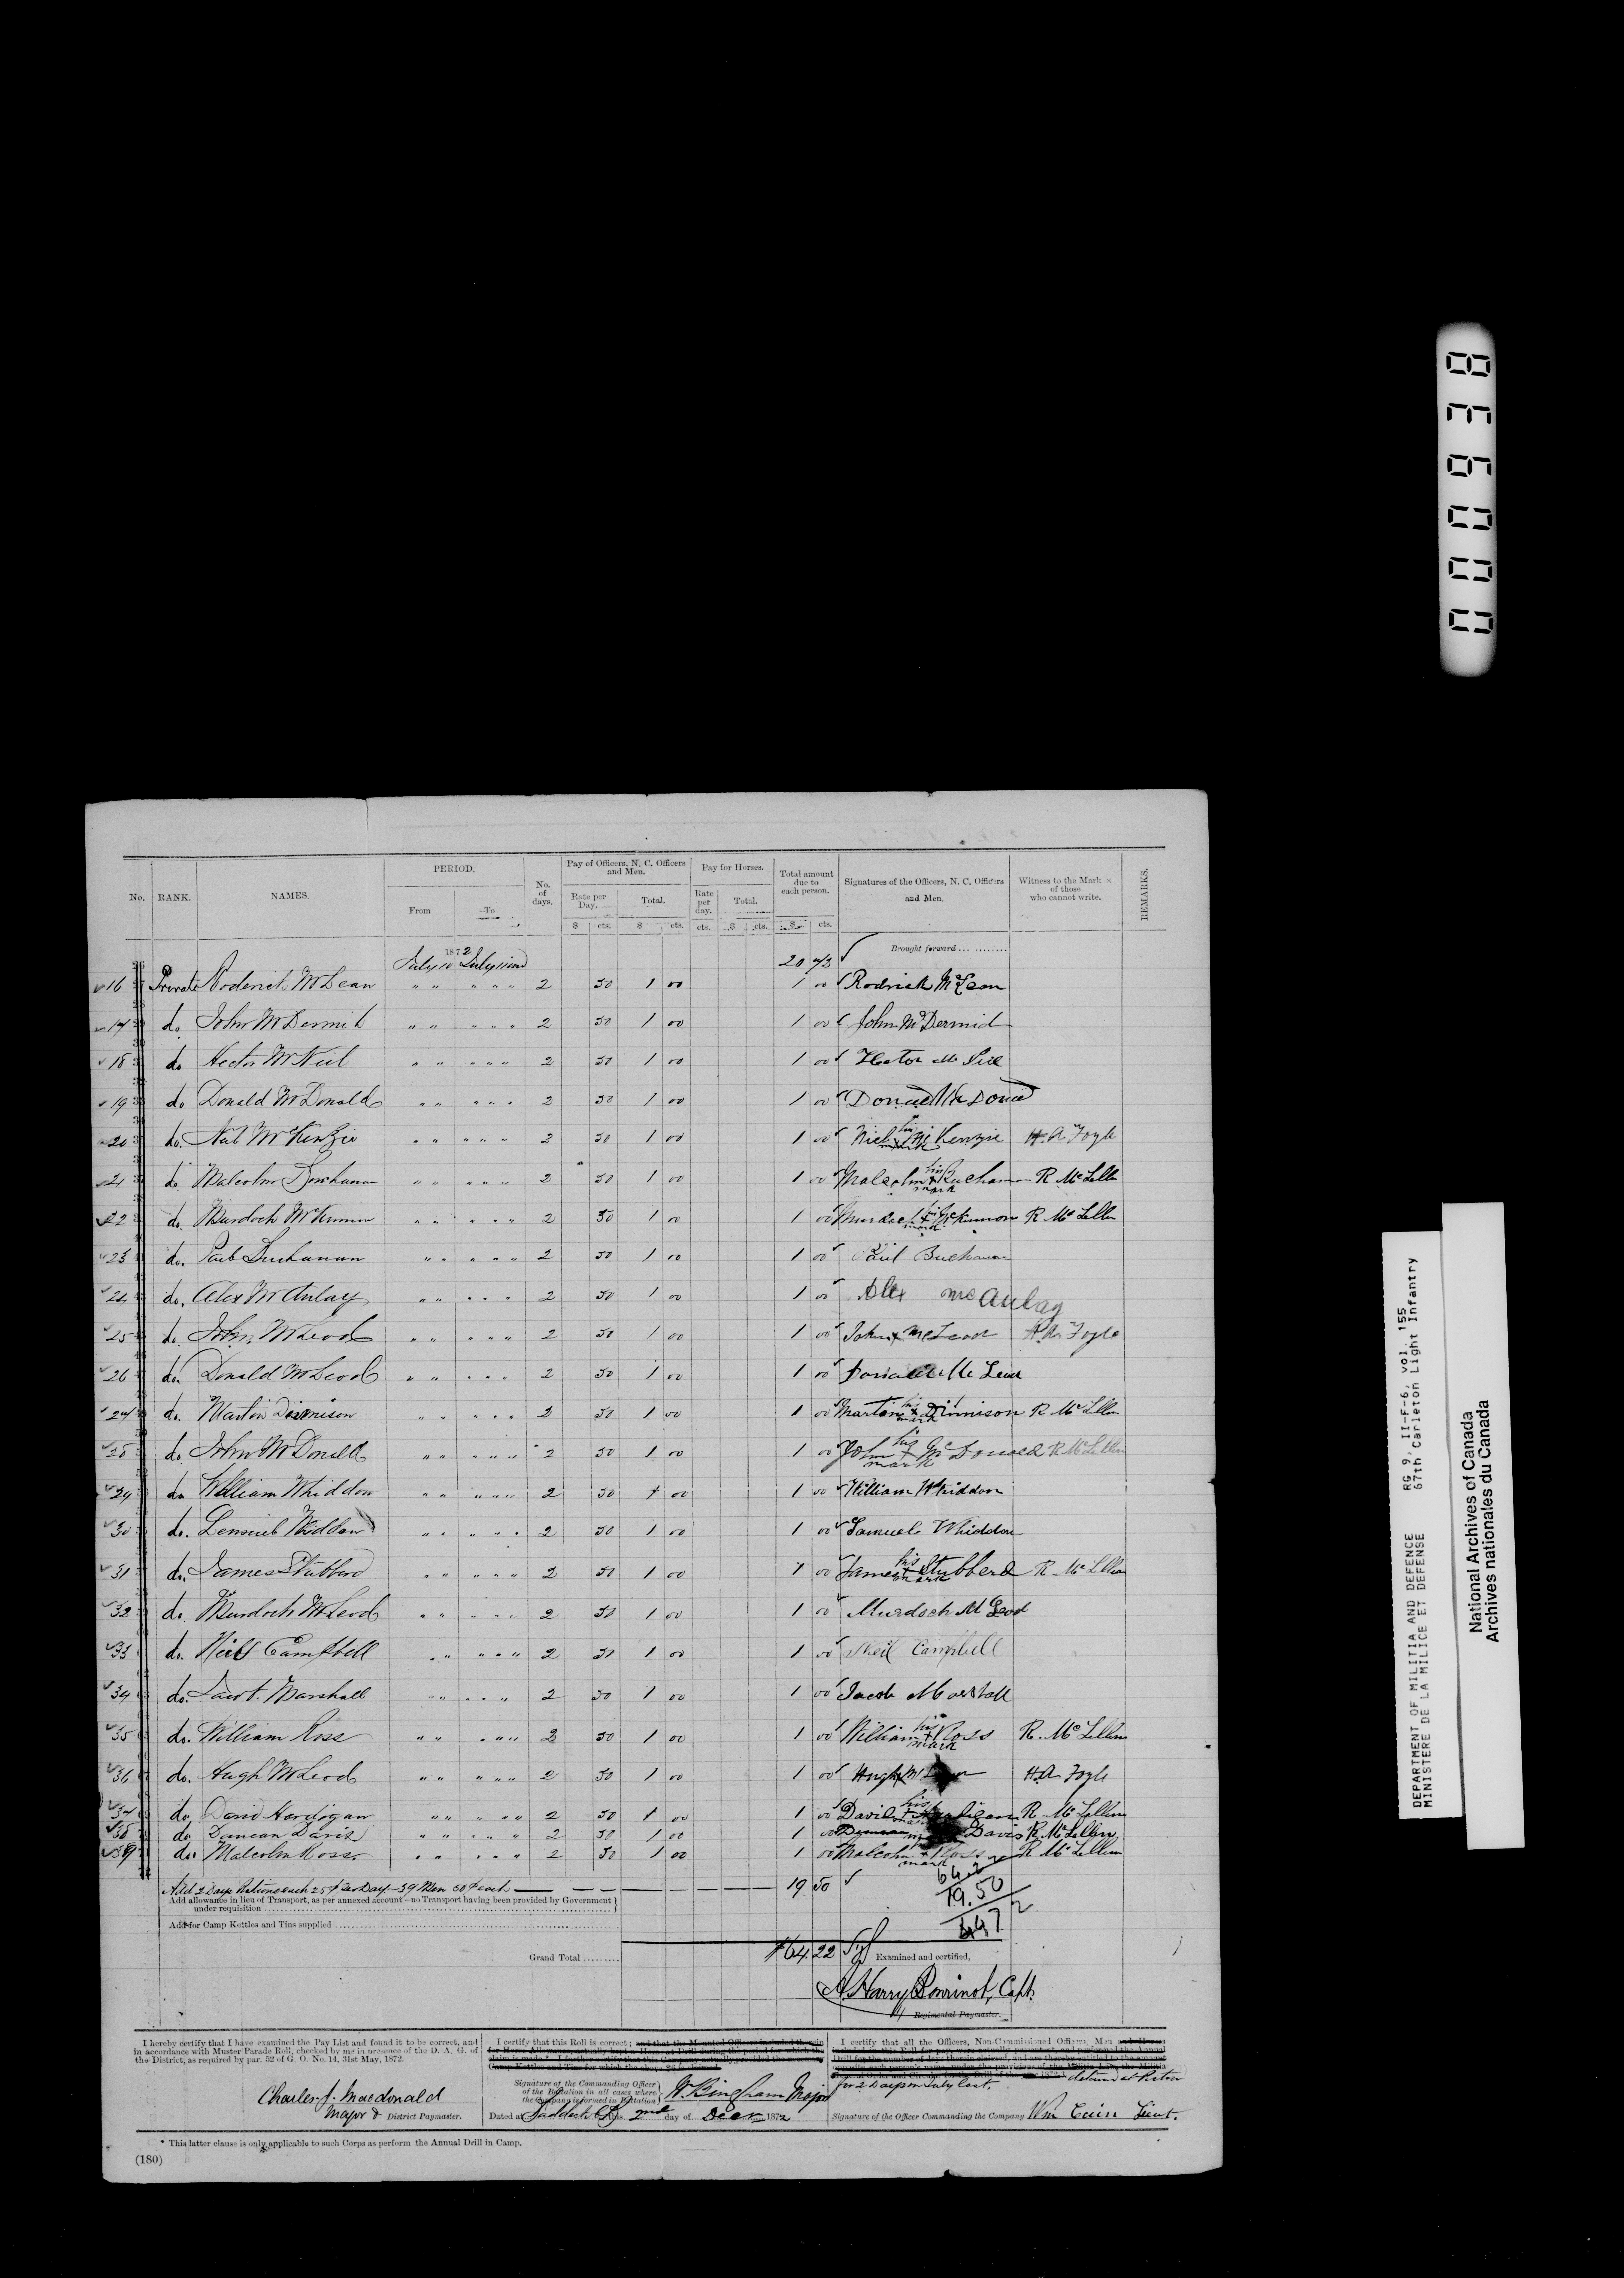 No. RANK. NAMES. PERIOD. From To No. of days. Pay of Officers, N. C. Officers and Men. Rate per Day. Total. Pay for Horses. Rate per day. Total. Total amount due to each person. Signatures of the Officers, N. C. Officers and Men. Witness to the Mark × of those who cannot write. REMARKS.
$ cts. $ cts. cts. $ cts. $ cts.
1872 Brought forward
July 10 July 11 20 73
16 Private Roderick McLean " " " " " 2 50 1 00 1 00 Rodrick McLean
17 do John McDermid " " " " " 2 50 1 00 1 00 John McDermid
18 do Hector McNeil " " " " " 2 50 1 00 1 00 Hector Mc
19 do Donald McDonald " " " " " 2 50 1 00 1 00 Donald
20 do. Neil McKenzie " " " " " 2 50 1 00 1 00 Niel his × mark McKenzie H.A. Foyle
21 do Malcolm Buchanan " " " " " 2 50 1 00 1 00 Malcolm his × mark Buchanan R McLellan
22 do. Murdoch McKinnon " " " " " 2 50 1 00 1 00 his × mark McKinnon R McLellan
23 do. Paul Buchanan " " " " " 2 50 1 00 1 00 Paul Buchanan
24 do. Alex McAulay " " " " " 2 50 1 00 1 00 Alex McAulay
25 do. John McLeod " " " " " 2 50 1 00 1 00 John × McLeod H.A. Foyle
26 do. Donald McLeod " " " " " 2 50 1 00 1 00 Mc Leod
27 do. Martin Dinnison " " " " " 2 50 1 00 1 00 Martin his × mark Dinnison R McLellan
28 do. John McDonald " " " " " 2 50 1 00 1 00 John his + mark McDonald R McLellan
29 do William Whiddon " " " " " 2 50 1 00 1 00 William Whiddon
30 do. Lemuel Whidden " " " " " 2 50 1 00 1 00 Lamuel Whiddon
31 do. James Stubberd " " " " " 2 50 1 00 1 00 James his × mark Stubberd R McLellan
32 do. Murdoch McLeod " " " " " 2 50 1 00 1 00 Murdoch McLeod
33 do. Neil Campbell " " " " " 2 50 1 00 1 00 Neil Campbell
34 do. Jacob Marshall " " " " " 2 50 1 00 1 00 Jacob Marshall
35 do. William Ross " " " " " 2 50 1 00 1 00 William his + mark Ross R. McLellan
36 do. Hugh McLeod " " " " " 2 50 1 00 1 00 Hugh × H.A. Foyle
37 do David Hardigan " " " " " 2 50 1 00 1 00 David his + mark R McLellan
38 do Duncan Davis " " " " " 2 50 1 00 1 00 Duncan Davis R. McLellan
39 do. Malcolm Ross " " " " " 2 50 1 00 1 00 Malcolm + mark Ross R McLellan
Add 2 Days Rations each 25¢ per Day — 39 Men 50¢ each 19 50 64.22
19.50
Add allowance in lieu of Transport, as per annexed account—no Transport having been provided by Government
under requisition 44 72
Add for Camp Kettles and Tins supplied
Grand Total $64.22 Examined and certified,
A. Harry Bourinot, Capt.
Regimental Paymaster.
I hereby certify that I have examined the Pay List and found it to be correct, and
in accordance with Muster Parade Roll, checked by me in presence of the D. A. G. of
the District, as required by par. 52 of G. O. No. 14, 31st May, 1872.
Charles J. Macdonald
Major & District Paymaster.
I certify that this Roll is correct;
Signature of the Commanding Officer
of the Battalion in all cases where
the Company is formed in Battalion
W. Bingham Major
Dated at Baddeck C.B. this 2nd day of Decr 1872
I certify that all the Officers, Non-Commissioned Officers, Men
for 2 Days in July last.
Signature of the Officer Commanding the Company Wm Lieut.
* This latter clause is only applicable to such Corps as perform the Annual Drill in Camp.
(180)
DEPARTMENT OF MILITIA AND DEFENCE RG 9, II-F-6, vol. 155
MINISTERE DE LA MILICE ET DEFENSE 67th Carleton Light Infantry
National Archives of Canada
Archives nationales du Canada